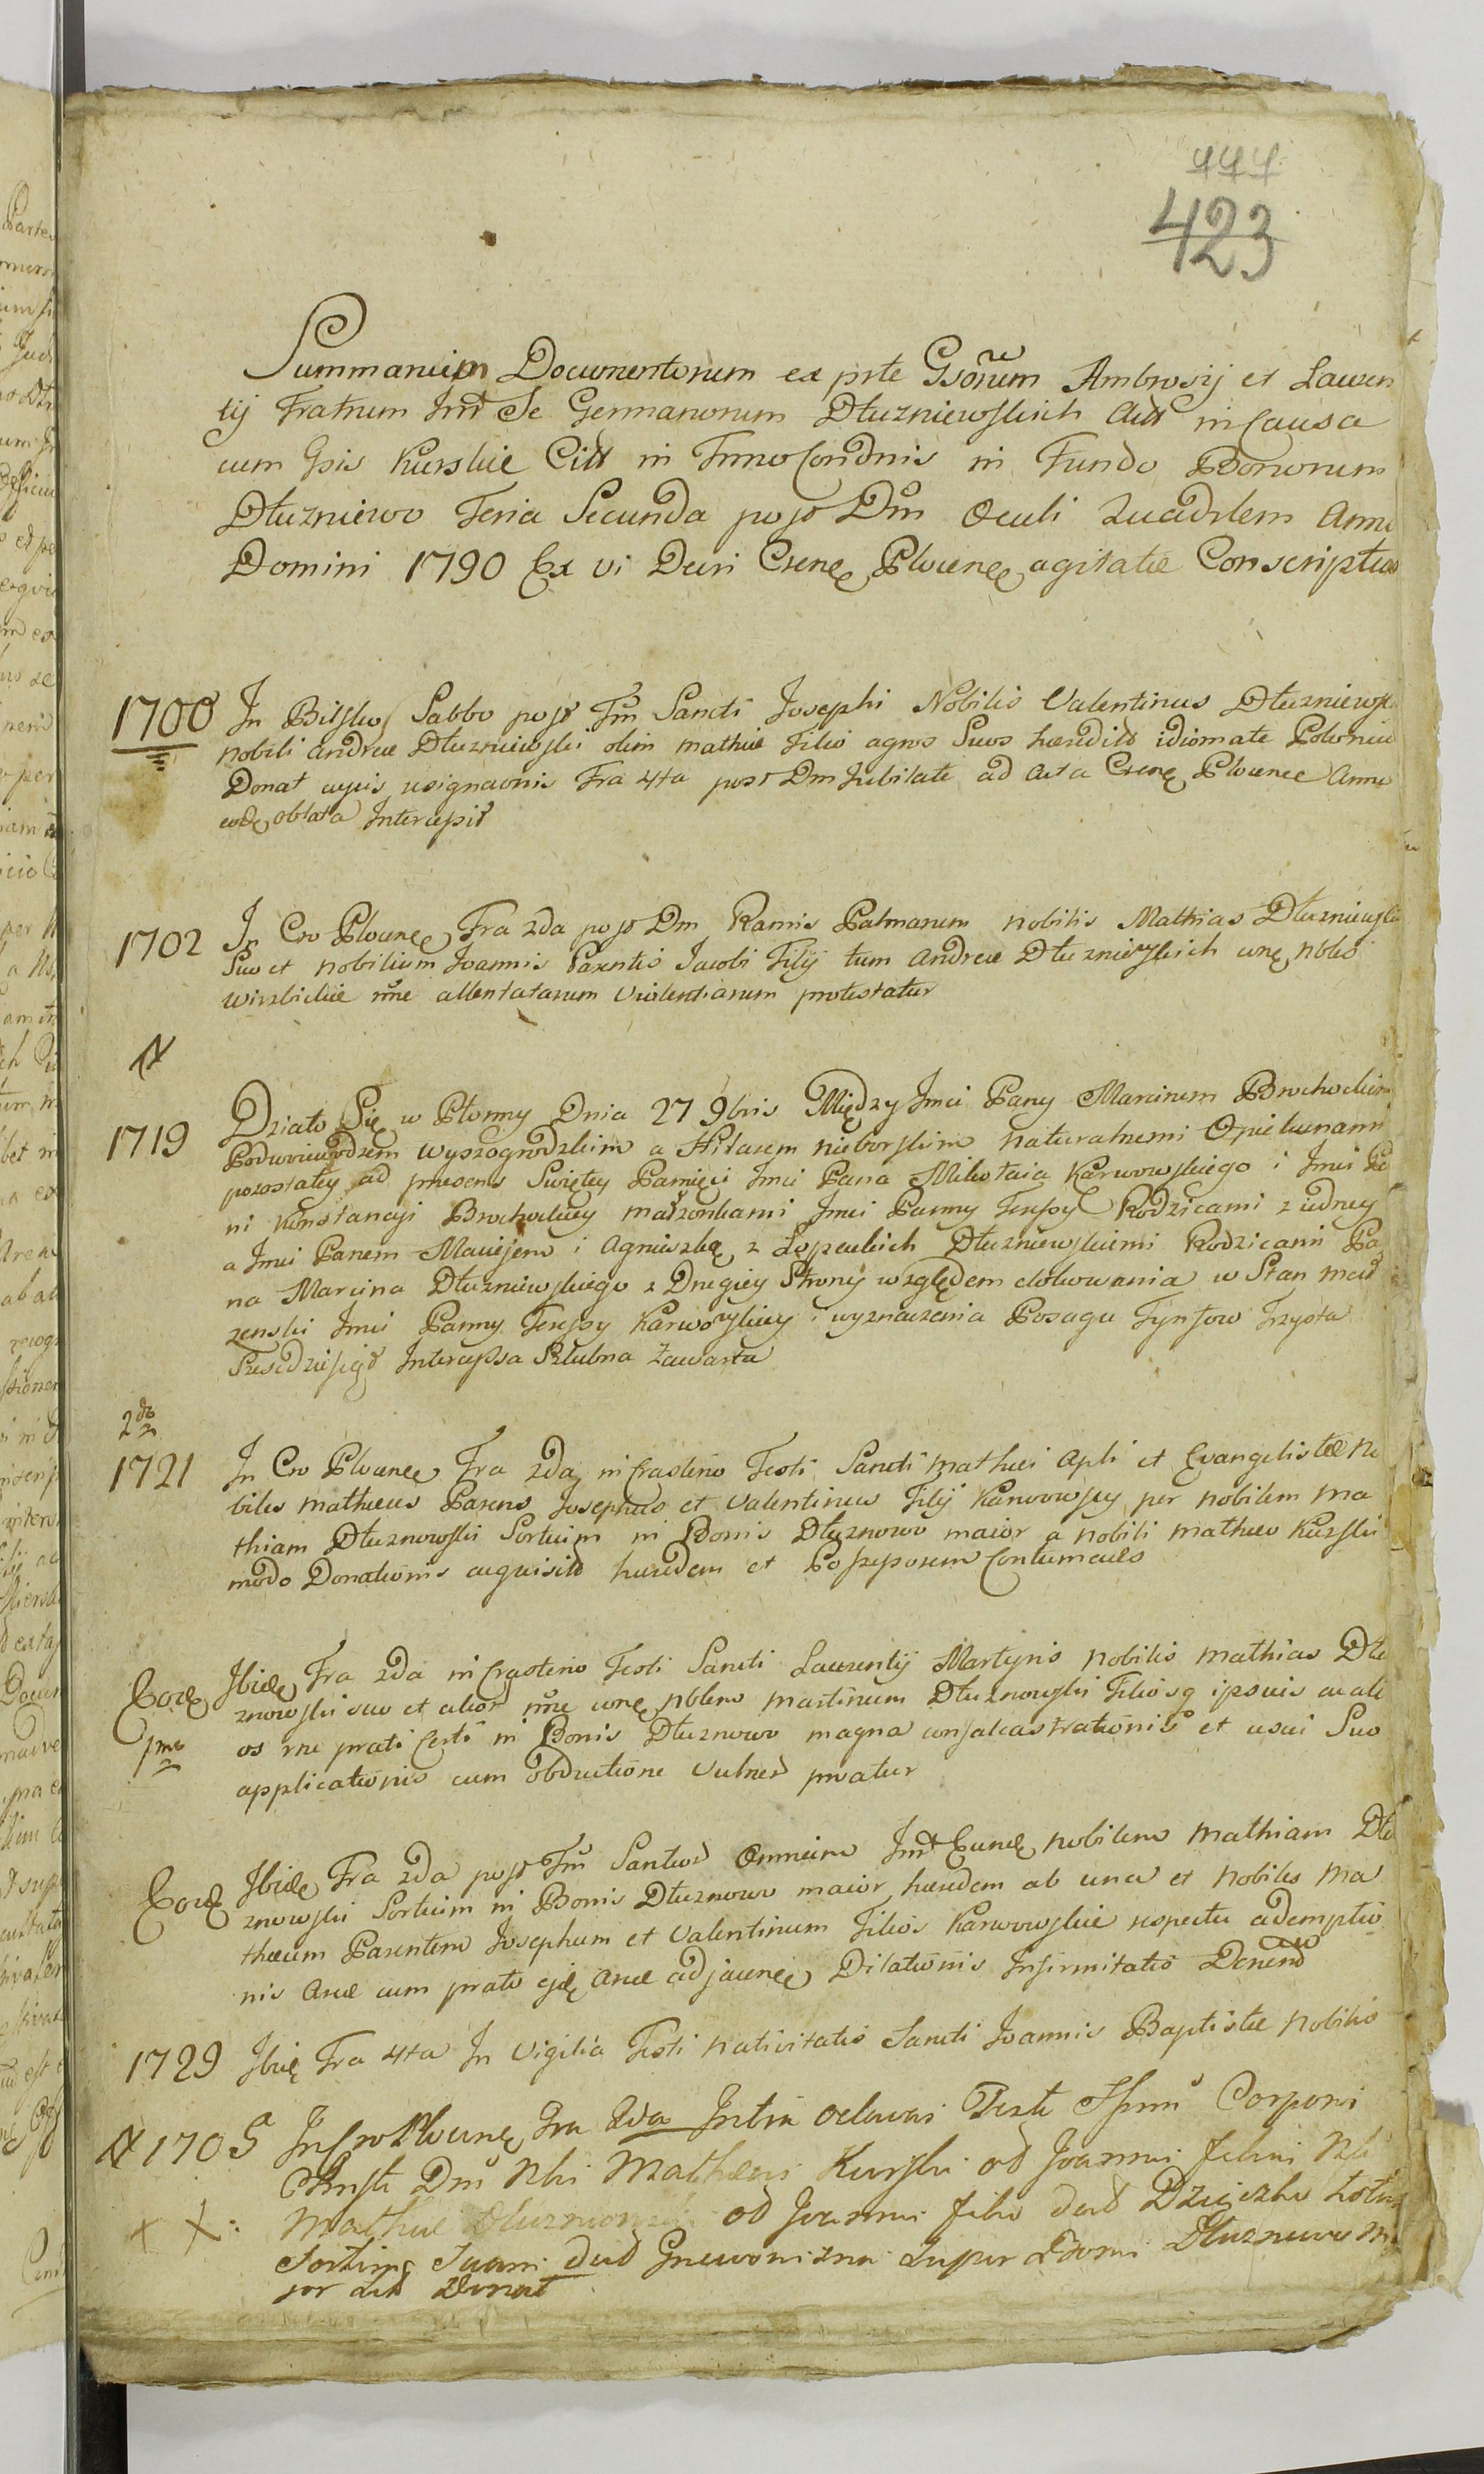 444
423
Summarium Documentorum ex prte Gsorum Ambrosij et Lauren
tij Fratrum Int Se Germanorum Dłuzniewskich Act in Causa
cum Gsis Kurskie Citt in Trno Condnis in Fundo Bonorum
Dłuzniewo Feria Secunda post Dm Oculi Quadrlem Anno
Domini 1790 Ex vi Decri Csene Plocne agitatæ Conscriptum
1700 In Bilsko Sabbo post Fm Sancti Josephi Nobilis Valentinus Dłuzniewski
nobili Andreæ Dłuzniewski olim Mathiæ Filio agros Suos hæredit idiomate Polonico
Donat cujus resignaonis Fra 4ta post Dm Jubilate ad Acta Csene Plocnce Anno
eode oblata Intercessit
1702 In Cro Plocnce Fra 2da post Dm Ramis Palmarum nobilis Mathias Dłuzniewski
Suo et nobilium Joannis Parentis Jacobi Filij tum Andreæ Dłuzniewskich nne nbles
Wierzbickie rne attentatarum violentiarum protestatur
1719 Działo Się w Płonny Dnia 27 9bris Między Jmci Pany Marcinem Brochockim
Podwoiewodzem Wyszogrodzkim a Hilarem nieborskim naturalnemi Opiekunami
pozostałey ad præsens Swiętey Pamięci Jmci Pana Mikołaia Karwowskiego i Jmci Pa
ni Konstancyi Brochockiey małżonkami Jmci Panny Teressy Rodzicami z iedney
a Jmci Panem Maciejem i Agnieszką z Dłuzniewskiemi Rodzicami Pa
na Marcina Dłuzniewskiego z Drugiey Strony względem dotowania w Stan mał
zenski Jmci Panny Teressy Karwowskiey i wyznaczenia Posagu Tynfow Trzysta
Szescdziesiąt Intercyssa Szlubna Zawarta
2do
1721 In Cro Plocnce Fra 2da in crastino Festi Sancti Mathæi Apli et Evangelistæ No
biles Mathæus Parens Josephus et Valentinus Filij Karwowscy per nobilem Ma
thiam Dłuznowski Sortium in Bonis Dłuznowo maior a nobili Mathæo Kurski
modo Donationis acquisit hæredem et Possessorem Contumaces
Eode Ibide Fra 2da in Crastino Festi Sancti Laurentij Martyris nobilis Mathias Dłu
1mo znowski suo et alior nne cone nblem Martinum Dłuznowski Filiosq ipsius
os rne prati Certi in Bonis Dłuznowo magna et usui Suo
applicationis cum obductione Vulner
Eode Ibide Fra 2da post Fm Santor Omnium Int Eunde nobilem Mathiam Dłu
znowski Sortium in Bonis Dłuznowo maior hæredem ab una et nobiles Ma
thæum Parentem Josephum et Valentinum Filios Karwowskie respectu ademptio
nis Areæ cum prato ejde Areæ adjacne Dilationis Infirmitatis
1729 Ibide Fra 4ta In Vigilia Festi nativitatis Sancti Joannis Baptistæ nobilis
1705 In Cro Plocne Fra 2da Intra octavas Festi Ssmi Corporis
Christi Dni Nlis Mathæus Kurski od Joannis filius Nli
Mathiæ Dłuzniewski od Joannis filio dict Dzięczka totam
Sortem Suam dict Gniewoniznam Super Bonis Dłuznowo Ma
jor sitt Donat